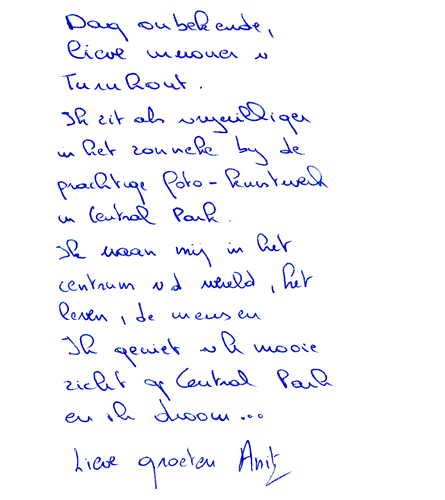 Dag onbekende,
lieve inwoner v
Turnhout.
Ik zit als vrijwilliger
in het zonneke bij de
prachtige foto-kunstwerk
in Central Park.
Ik waan mij in het
centrum v d wereld, het
leven, de mensen
Ik geniet v h mooie
zicht op Central Park
en ik droom...
Lieve groeten Anit